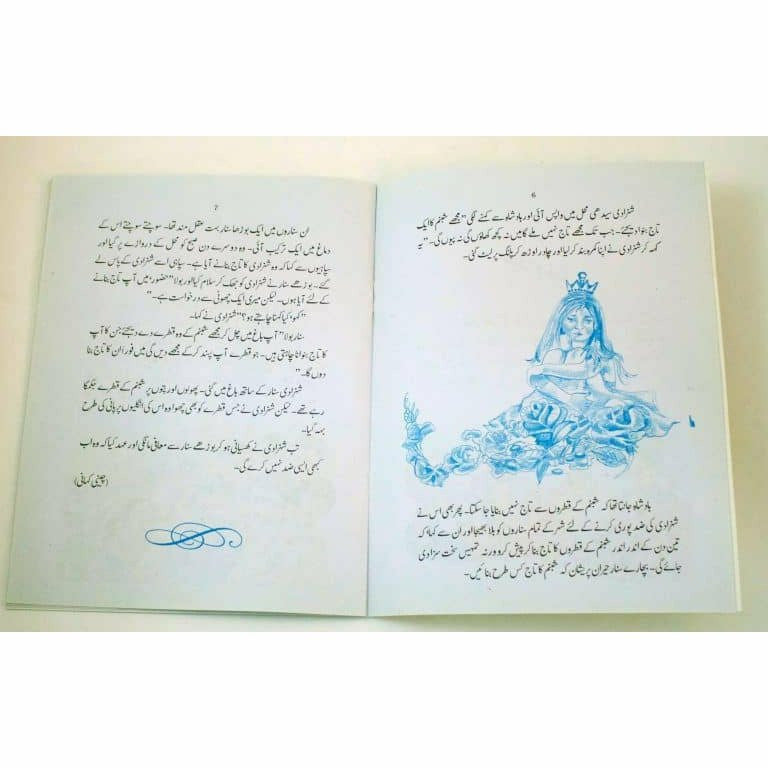 6
شہزادی سیدھی محل میں واپس آئی اور بادشاہ سے کہنے لگی "مجھے شبنم کا ایک
تاج بنوا دیجئے۔ جب تک مجھے تاج نہیں ملے گا میں نہ کچھ کھاؤں گی نہ پیوں گی۔" یہ
کہہ کر شہزادی نے اپنا کمرہ بند کر لیا اور چادر اوڑھ کر پلنگ پر لیٹ گئی۔
بادشاہ جانتا تھا کہ شبنم کے قطروں سے تاج نہیں بنایا جا سکتا۔ پھر بھی اس نے
شہزادی کی ضد پوری کرنے کے لئے شہر کے تمام سناروں کو بلا بھیجا اور ان سے کہا کہ
تین دن کے اندر اندر شبنم کے قطروں کا تاج بنا کر پیش کرو ورنہ تمہیں سخت سزا دی
جائے گی۔ بچارے سنار حیران پریشان کہ شبنم کا تاج کس طرح بنائیں۔
7
ان سناروں میں ایک بوڑھا سنار بہت عقل مند تھا۔ سوچتے سوچتے اس کے
دماغ میں ایک ترکیب آئی۔ وہ دوسرے دن صبح کو محل کے دروازے پر گیا اور
سپاہیوں سے کہا کہ وہ شہزادی کا تاج بنانے آیا ہے۔ سپاہی اسے شہزادی کے پاس لے
گئے۔ بوڑھے سنار نے شہزادی کو جھک کر سلام کیا اور بولا "حضور' میں آپ تاج بنانے
کے لئے آیا ہوں۔ لیکن میری ایک چھوٹی سے درخواست ہے۔"
"کہو' کیا کہنا چاہتے ہو؟" شہزادی نے کہا۔
سنار بولا "آپ باغ میں چل کر مجھے شبنم کے وہ قطرے دے دیجئے جن کا آپ
کا تاج بنوانا چاہتی ہیں۔ جو قطرے آپ پسند کر کے مجھے دیں گی میں فوراً ان کا تاج بنا
دوں گا۔"
شہزادی سنار کے ساتھ باغ میں گئی۔ پھولوں اور پتوں پر شبنم کے قطرے جگمگا
رہے تھے۔ لیکن شہزادی نے جس قطرے کو بھی چھوا وہ اس کی انگلیوں پر پانی کی طرح
بہہ گیا۔
تب شہزادی نے کھسیانی ہو کر بوڑھے سنار سے معافی مانگی اور عہد کیا کہ وہ اب
کبھی ایسی ضد نہیں کرے گی۔
(چینی کہانی)